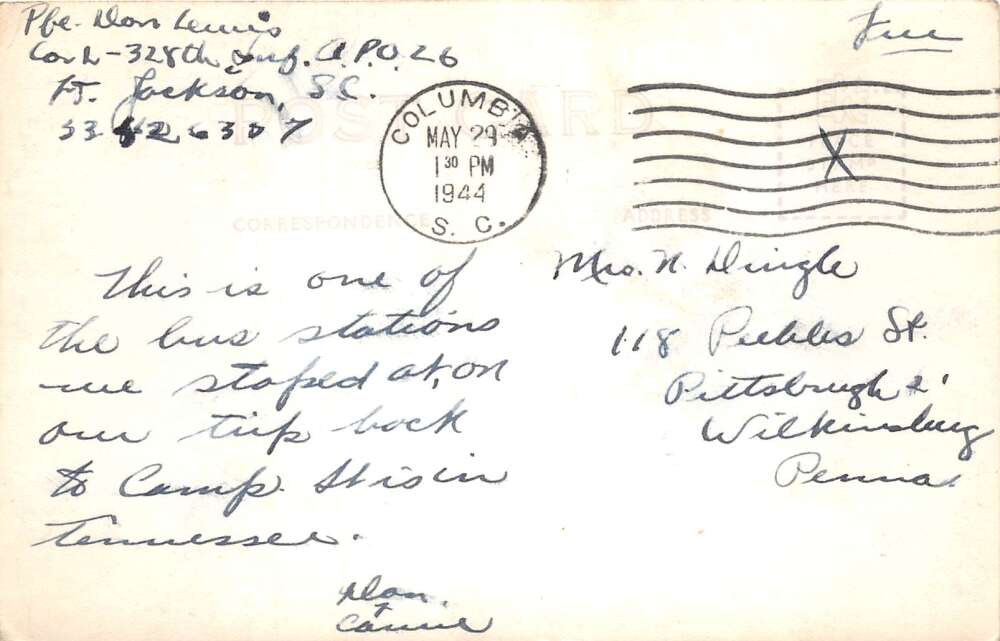 Pfc. Don Lewis
Co. L-328th Inf. A.P.O. 26
Ft. Jackson, S.C.
Free
POST CARD
COLUMBIA
MAY 29
1 30 PM
1944
S. C.
X
PLACE
STAMP
HERE
CORRESPONDENCE
ADDRESS
This is one of
the bus stations
we stoped at, on
our trip back
to Camp. It is in
Tennessee.
Don
+
Mrs. N. Dingle
118 Peebles St.
Pittsbrugh 21
Wilkinsburg
Penna.